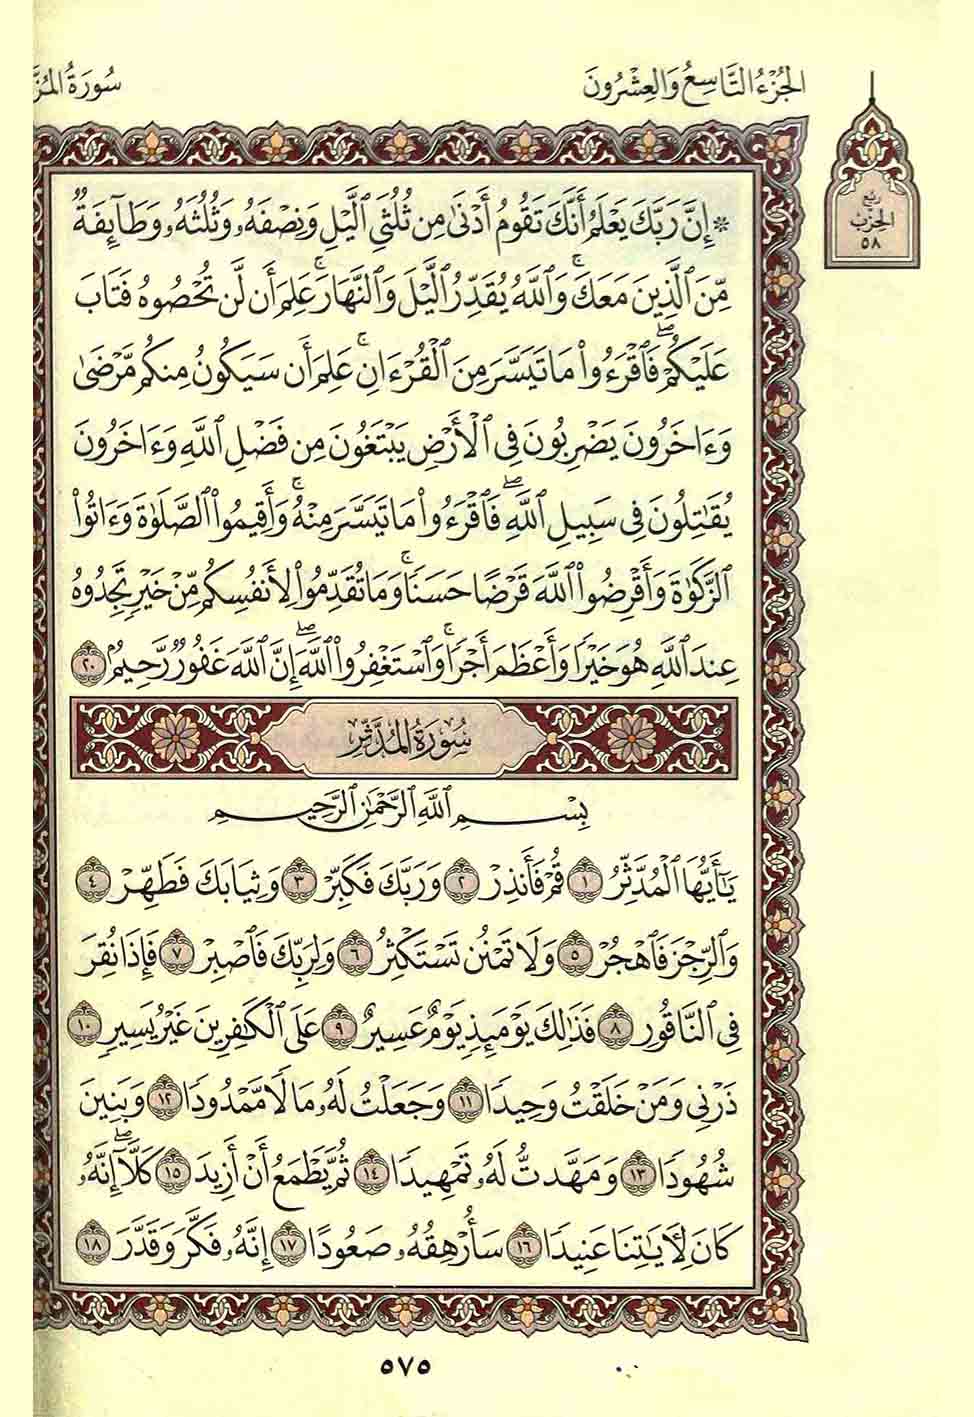 الجُزْءُ التَّاسِعُ وَالعِشْرُونَ
سُورَةُ المُزَّ
رُبْع
الحِزْب
٥٨
۞ إِنَّ رَبَّكَ يَعْلَمُ أَنَّكَ تَقُومُ أَدْنَىٰ مِن ثُلُثَيِ ٱلَّيْلِ وَنِصْفَهُۥ وَثُلُثَهُۥ وَطَآئِفَةٌ
مِّنَ ٱلَّذِينَ مَعَكَۚ وَٱللَّهُ يُقَدِّرُ ٱلَّيْلَ وَٱلنَّهَارَۚ عَلِمَ أَن لَّن تُحْصُوهُ فَتَابَ
عَلَيْكُمْۖ فَٱقْرَءُوا۟ مَا تَيَسَّرَ مِنَ ٱلْقُرْءَانِۚ عَلِمَ أَن سَيَكُونُ مِنكُم مَّرْضَىٰ
وَءَاخَرُونَ يَضْرِبُونَ فِى ٱلْأَرْضِ يَبْتَغُونَ مِن فَضْلِ ٱللَّهِ وَءَاخَرُونَ
يُقَٰتِلُونَ فِى سَبِيلِ ٱللَّهِۖ فَٱقْرَءُوا۟ مَا تَيَسَّرَ مِنْهُۚ وَأَقِيمُوا۟ ٱلصَّلَوٰةَ وَءَاتُوا۟
ٱلزَّكَوٰةَ وَأَقْرِضُوا۟ ٱللَّهَ قَرْضًا حَسَنًاۚ وَمَا تُقَدِّمُوا۟ لِأَنفُسِكُم مِّنْ خَيْرٍ تَجِدُوهُ
عِندَ ٱللَّهِ هُوَ خَيْرًا وَأَعْظَمَ أَجْرًاۚ وَٱسْتَغْفِرُوا۟ ٱللَّهَۖ إِنَّ ٱللَّهَ غَفُورٌ رَّحِيمٌۢ ٢٠
سُورَةُ المُدَّثِّرِ
بِسْمِ ٱللَّهِ ٱلرَّحْمَٰنِ ٱلرَّحِيمِ
يَٰٓأَيُّهَا ٱلْمُدَّثِّرُ ١ قُمْ فَأَنذِرْ ٢ وَرَبَّكَ فَكَبِّرْ ٣ وَثِيَابَكَ فَطَهِّرْ ٤
وَٱلرُّجْزَ فَٱهْجُرْ ٥ وَلَا تَمْنُن تَسْتَكْثِرُ ٦ وَلِرَبِّكَ فَٱصْبِرْ ٧ فَإِذَا نُقِرَ
فِى ٱلنَّاقُورِ ٨ فَذَٰلِكَ يَوْمَئِذٍ يَوْمٌ عَسِيرٌ ٩ عَلَى ٱلْكَٰفِرِينَ غَيْرُ يَسِيرٍ ١٠
ذَرْنِى وَمَنْ خَلَقْتُ وَحِيدًا ١١ وَجَعَلْتُ لَهُۥ مَالًا مَّمْدُودًا ١٢ وَبَنِينَ
شُهُودًا ١٣ وَمَهَّدتُّ لَهُۥ تَمْهِيدًا ١٤ ثُمَّ يَطْمَعُ أَنْ أَزِيدَ ١٥ كَلَّآۖ إِنَّهُۥ
كَانَ لِـَٔايَٰتِنَا عَنِيدًا ١٦ سَأُرْهِقُهُۥ صَعُودًا ١٧ إِنَّهُۥ فَكَّرَ وَقَدَّرَ ١٨
٥٧٥